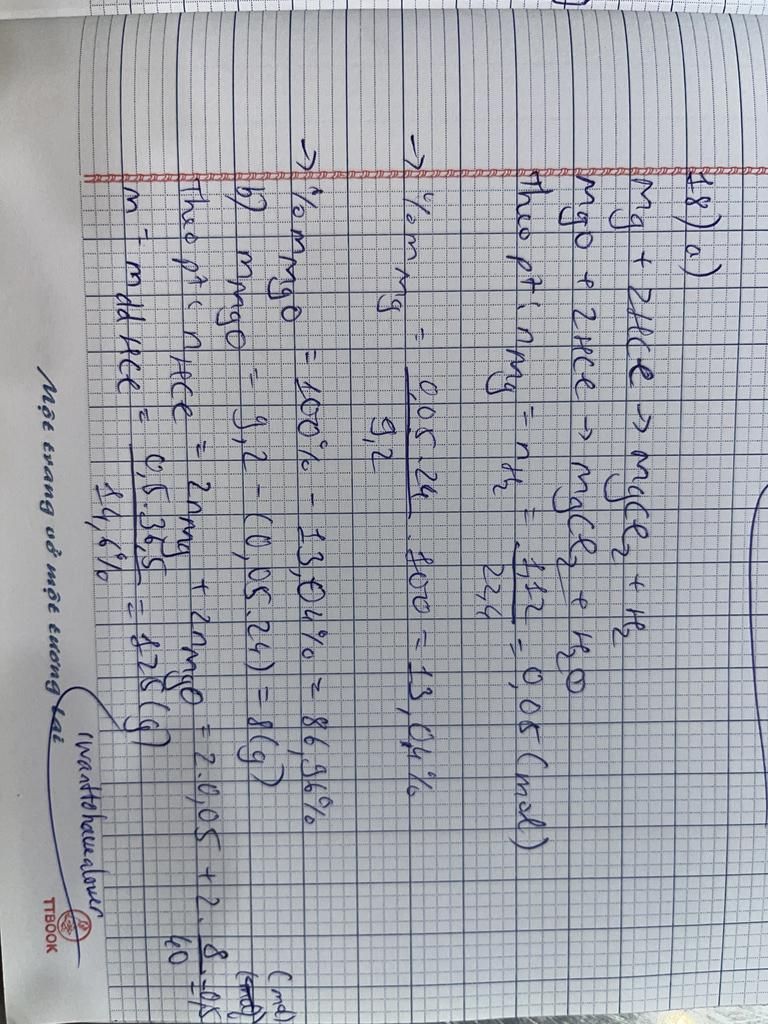 18) a)
Mg + 2HCl → MgCl₂ + H₂
MgO + 2HCl → MgCl₂ + H₂O
Theo pt: nMg = nH₂ = 1,12/22,4 = 0,05 (mol)
→ %mMg = 0,05.24/9,2 . 100 = 13,04%
→ %mMgO = 100% - 13,04% = 86,96%
b) mMgO = 9,2 - (0,05.24) = 8(g)
Theo pt: nHCl = 2nMg + 2nMgO = 2.0,05 + 2.8/40 = 0,5 (mol)
m = mddHCl = 0,5.36,5/14,6% = 125(g)
iwanttohavealover
Một trang vở một tương lai
TTBOOK